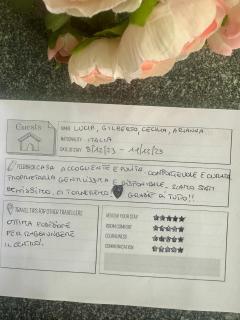 Guests
NAME LUCIA, GILBERTO, CECILIA, ARIANNA
NATIONALITY ITALIA
DATE OF STAY 8/12/23 - 11/12/23
FEEDBACK CASA ACCOGLIENTE E PULITA. CONFORTEVOLE E CURATA
PROPRIETARIA GENTILISSIMA E DISPONIBILE. SIAMO STATI
BENISSIMO, CI TORNEREMO GRAZIE DI TUTTO!!
TRAVEL TIPS FOR OTHER TRAVELLERS
OTTIMA POSIZIONE
PER RAGGIUNGERE
IL CENTRO!
REVIEW YOUR STAY
ROOM COMFORT
CLEANLINESS
COMMUNICATION